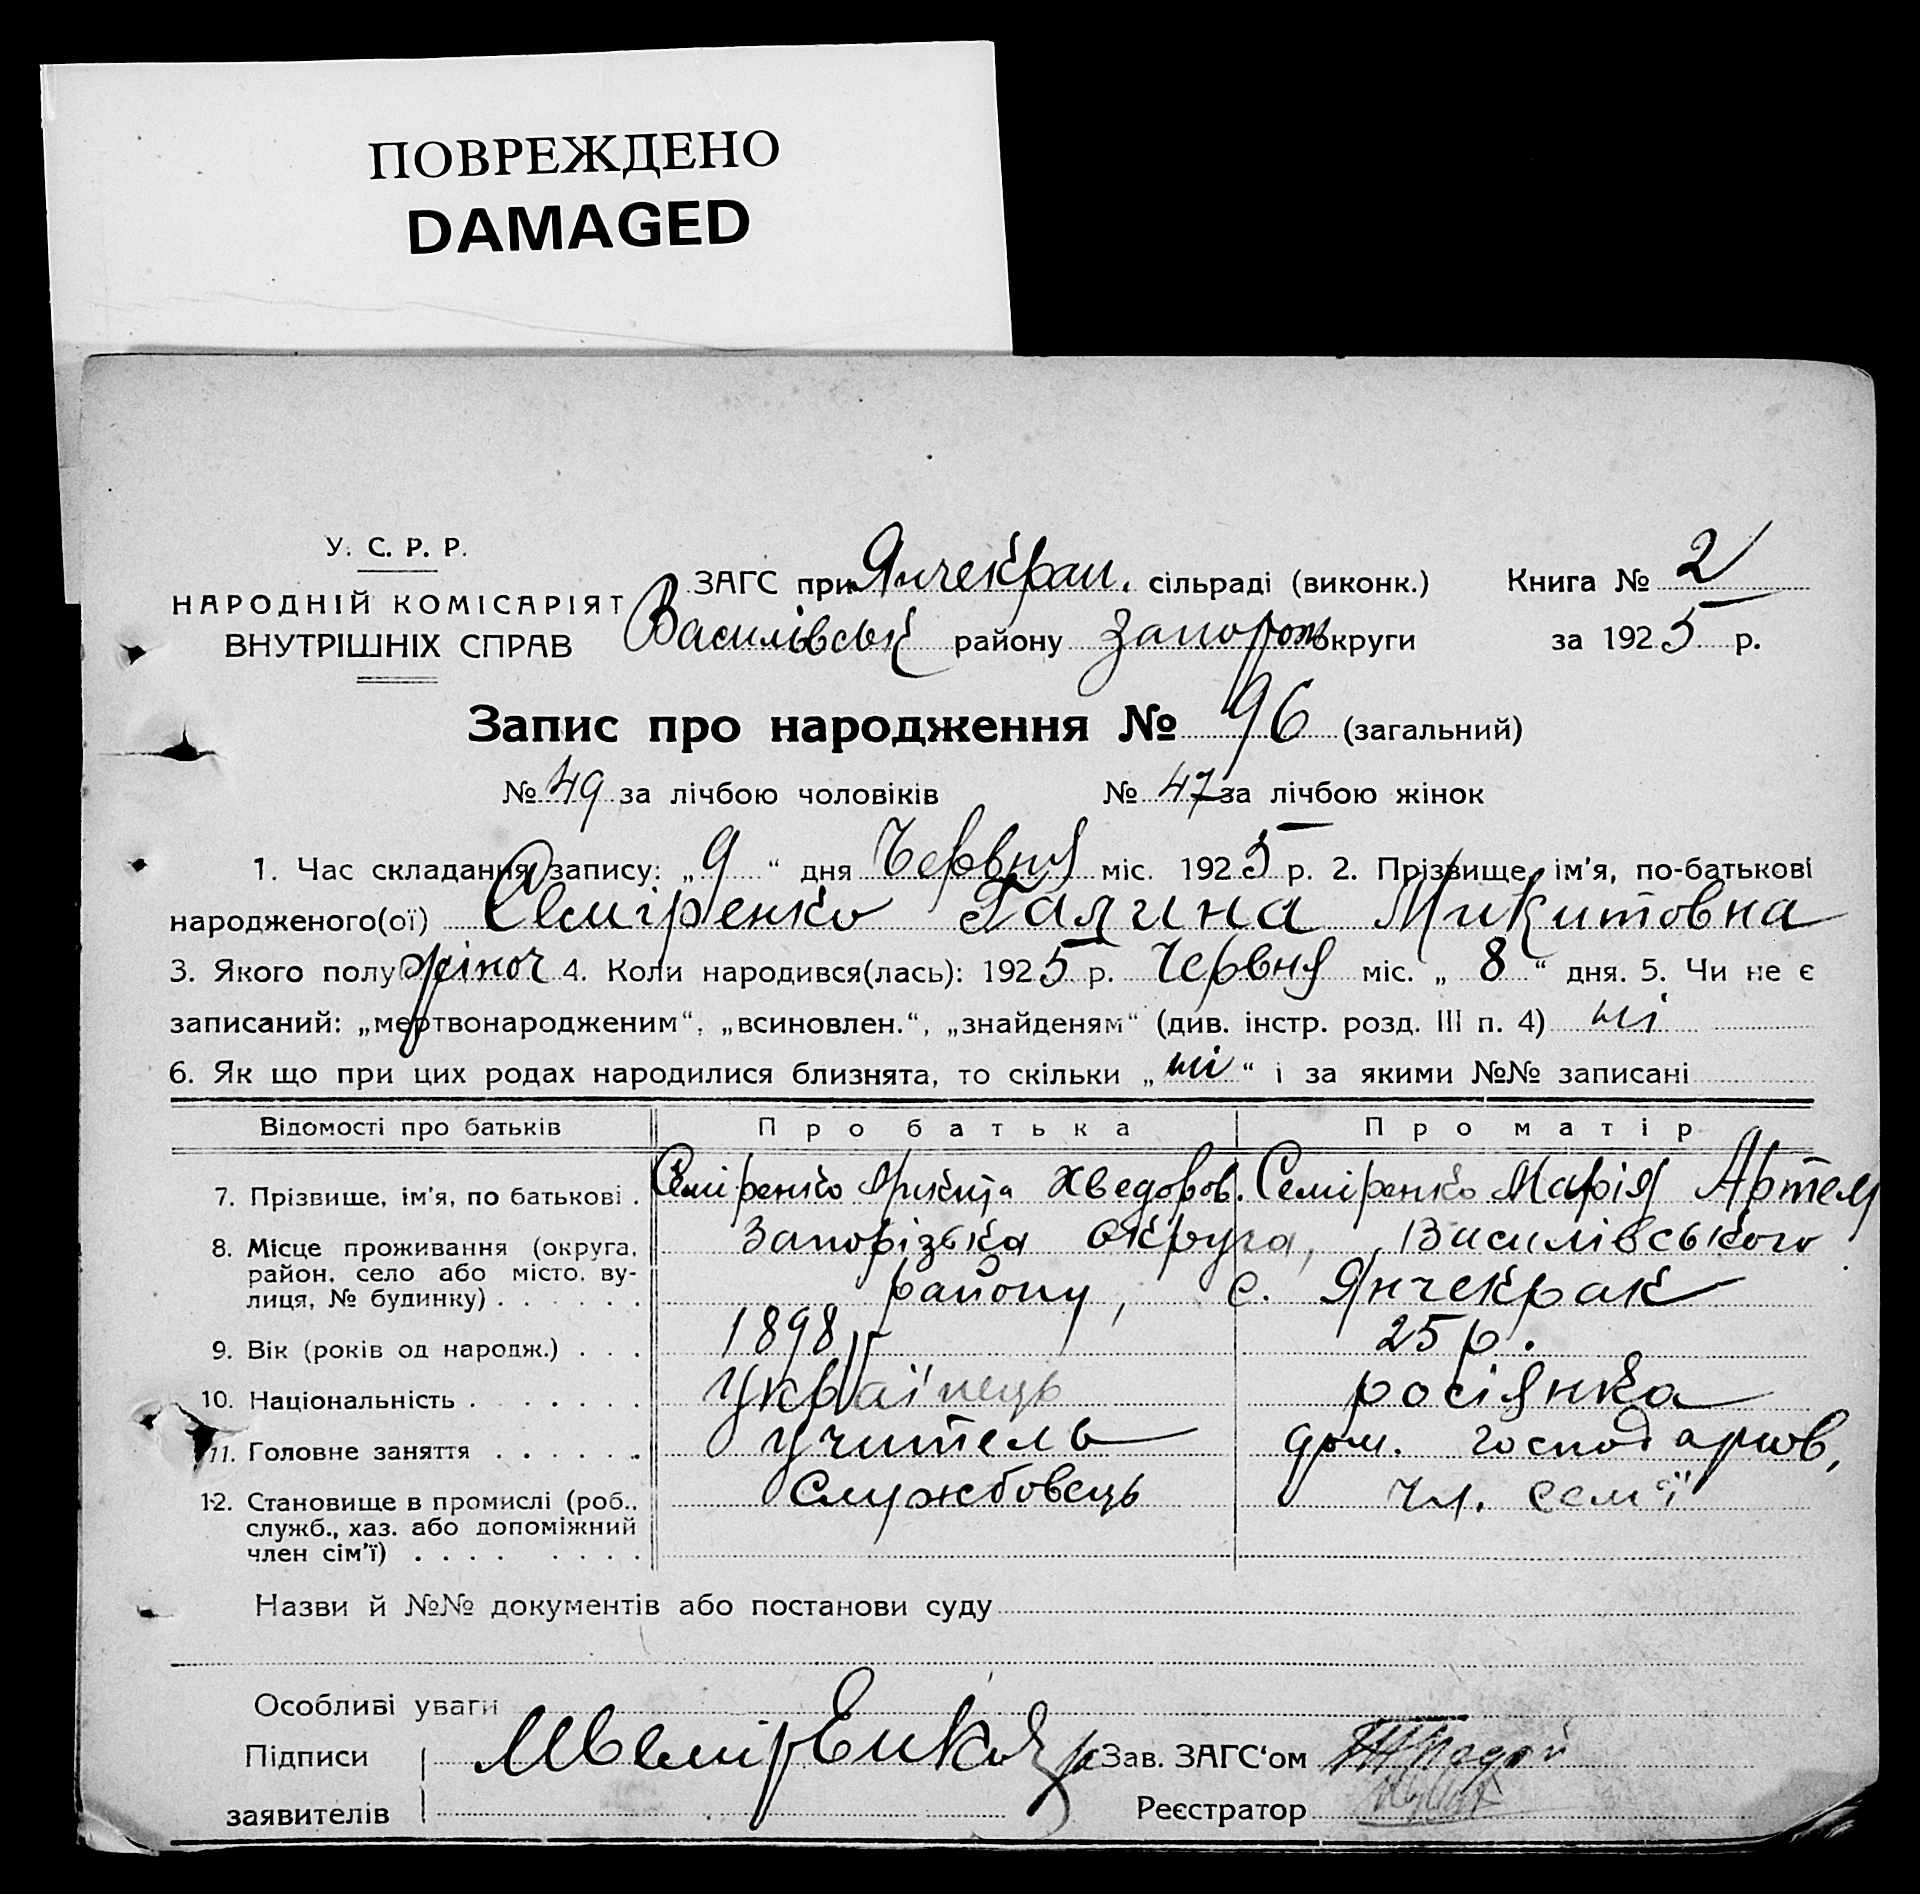 ПОВРЕЖДЕНО
DAMAGED
У. С. Р. Р.
НАРОДНІЙ КОМІСАРІЯТ
ВНУТРІШНІХ СПРАВ
ЗАГС при Янчекрац. сільраді (виконк.) Книга № 2
Василівськ району Запоріж округи за 1925 р.
Запис про народження № 96 (загальний)
№ 49 за лічбою чоловіків № 47 за лічбою жінок
1. Час складання запису: „ 9 “ дня Червня міс. 1925 р. 2. Прізвище, ім'я, по-батькові
народженого(ої) Семіренко Галина Микитовна
3. Якого полу жіноч 4. Коли народився(лась): 1925 р. Червня міс. „ 8 “ дня. 5. Чи не є
записаний: „мертвонародженим“, „всиновлен.“, „знайденям“ (див. інстр. розд. III п. 4) ні
6. Як що при цих родах народилися близнята, то скільки „ ні “ і за якими №№ записані
Відомості про батьків Про батька Про матір
7. Прізвище, ім'я, по батькові . Семіренко Микита Хведоров. Семіренко Марія Артем
8. Місце проживання (округа, район, село або місто, вулиця, № будинку) . . . . . . Запорізька округа, Василівського
району, с. Янчекрак
9. Вік (років од народж.) . . . 1898 25 р.
10. Національність . . . . . . . Українець росіянка
11. Головне заняття . . . . . . учитель дом. господарков,
12. Становище в промислі (роб., служб., хаз. або допоміжний член сім'ї) . . . . . . . . Службовець чл. сем'ї
Назви й №№ документів або постанови суду
Особливі уваги
Підписи
заявителів
Зав. ЗАГС'ом
Реєстратор